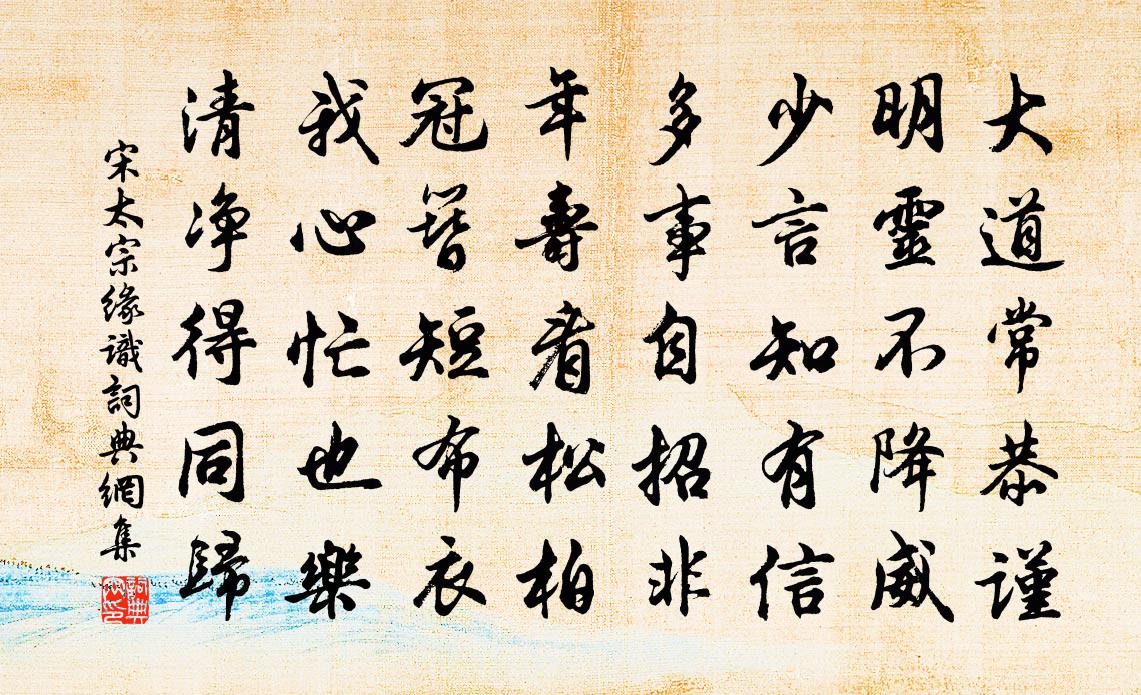 大道常恭謹
明靈不降威
少言知有信
多事自招非
年壽看松柏
冠簪短布衣
我心忙也樂
清净得同歸
宋太宗緣識詞典網集